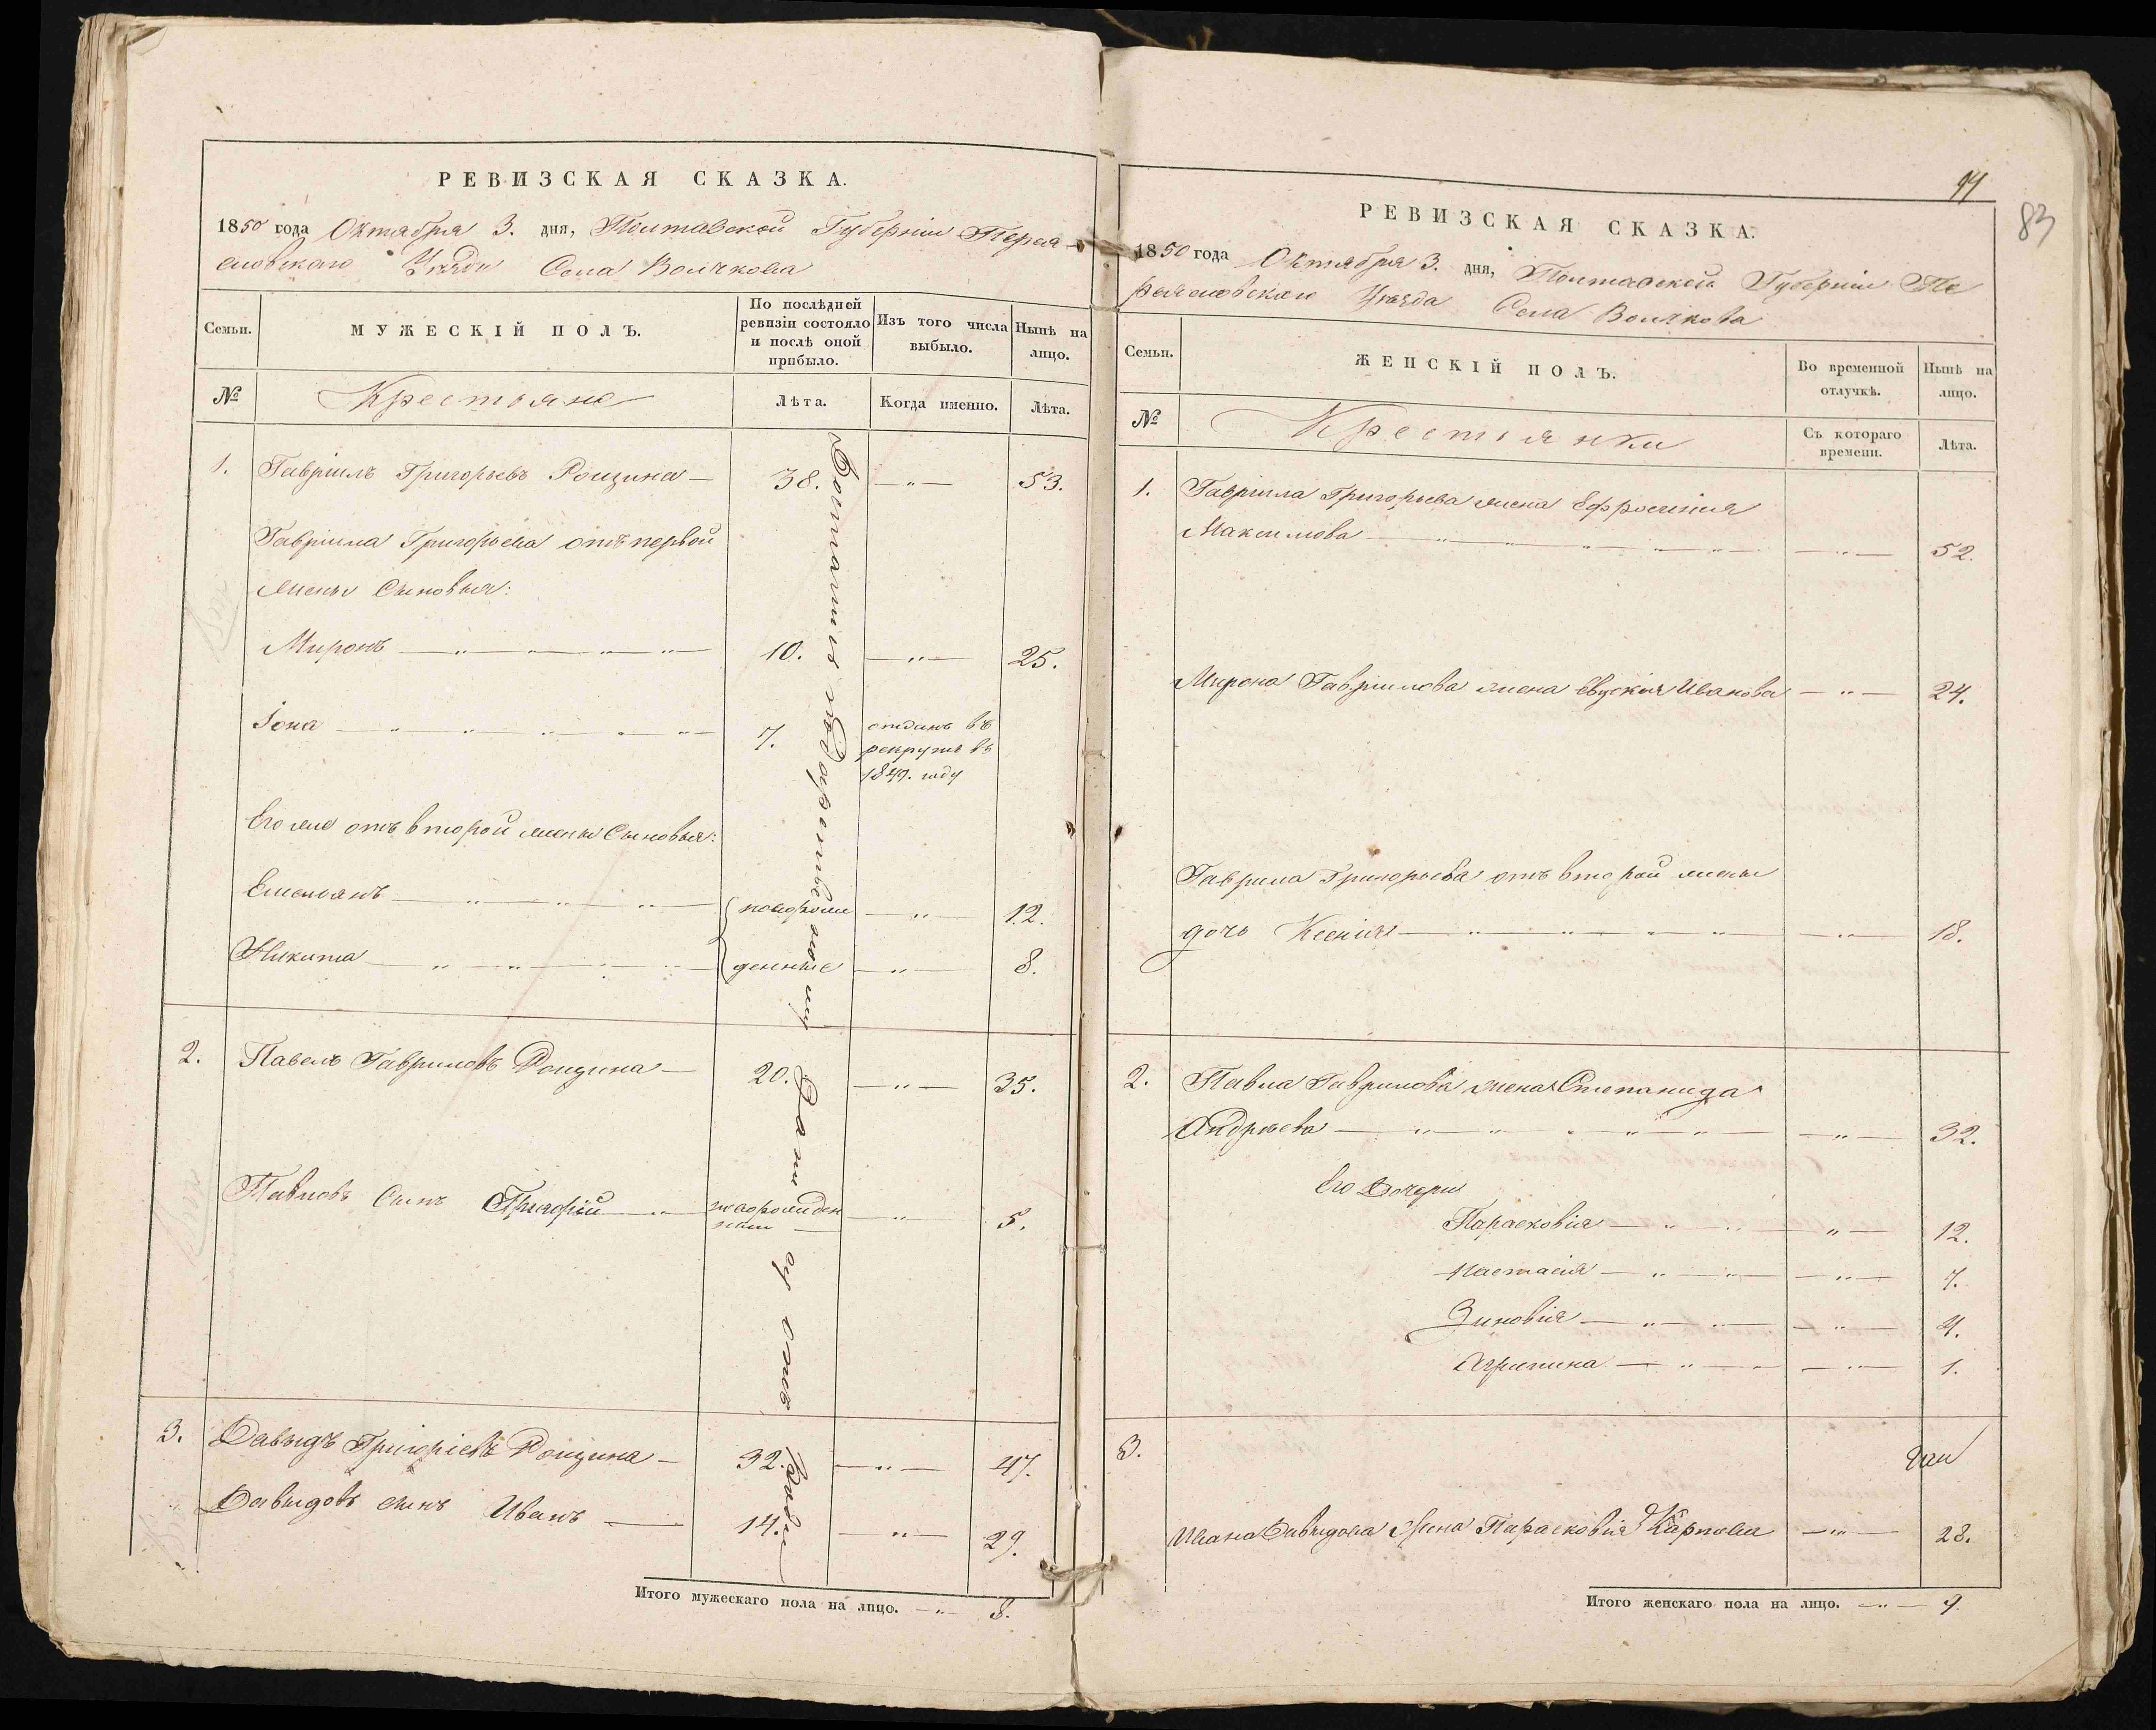 РЕВИЗСКАЯ СКАЗКА.
1850 года Октября 3. дня, Полтавской Губерніи Перея-
словскаго Уѣзда Села Волчкова
Семьи.
МУЖЕСКІЙ ПОЛЪ.
По послѣдней ревизіи состояло и послѣ оной прибыло.
Изъ того числа выбыло.
Нынѣ на лицо.
№
Крестьяне
Лѣта.
Когда именно.
Лѣта.
1. Гавріилъ Григорьевъ Рощина — 38. — " — 53.
Гавріила Григорьева отъ первой
жены Сыновья:
Миронъ — " — " — " — 10. — " — 25.
Іона — " — " — " — 7. отданъ въ
рекруты въ
1849. году
Его же отъ второй жены Сыновья:
Емельянъ — " — " — " — новорож — " — 12.
Никита — " — " — " — денные — " — 8.
2. Павелъ Гавриловъ Рощина — 20. — " — 35.
Павловъ Сынъ Григорій — " — новорожден
— " — 5.
3. Давыдъ Григоріевъ Рощина — 32. — " — 47.
Давыдовъ сынъ Иванъ — 14. — " — 29.
Итого мужескаго пола на лицо. — " — 8.
83
РЕВИЗСКАЯ СКАЗКА.
1850 года Октября 3. дня, Полтавской Губерніи Пе
реяславскаго Уѣзда Села Волчкова
Семьи.
ЖЕНСКІЙ ПОЛЪ.
Во временной отлучкѣ.
Нынѣ на лицо.
№
Крестьянки
Съ котораго времени.
Лѣта.
1. Гавріила Григорьева жена Ефросинія
Максимова — " — " — " — " — 52.
Мирона Гавріилова жена Евдокія Иванова — " — 24.
Гаврила Григорьева отъ второй жены
дочь Ксенія — " — " — " — " — 18.
2. Павла Гаврилова жена Степанида
Андреева — " — " — " — " — 32.
Его Дочери
Парасковія — " — " — " — 12.
Настасія — " — " — " — 7.
Зиновія — " — " — " — 4.
Агрипина — " — " — 1.
3.
Ивана Давыдова Жена Парасковія Карпова — " — 28.
Итого женскаго пола на лицо. — " — 9.